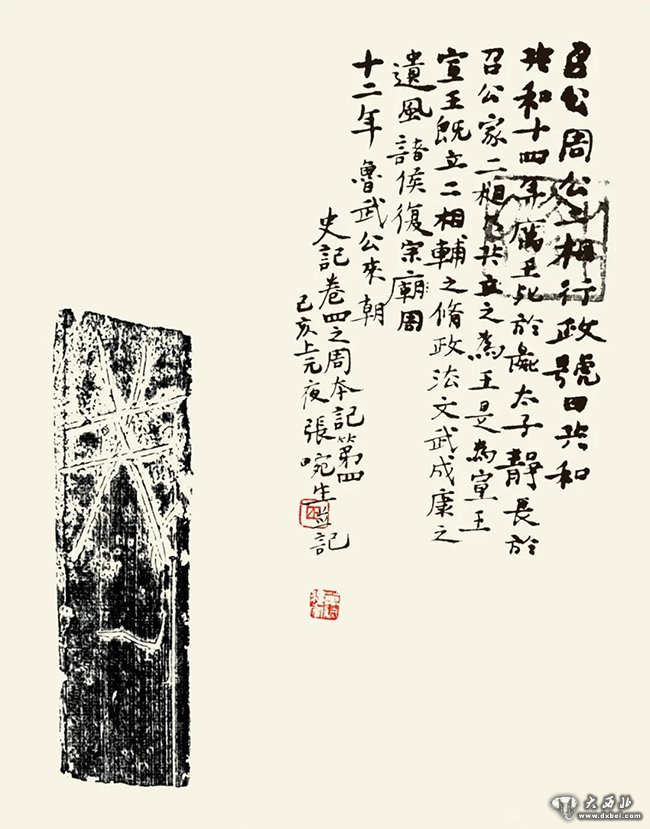 召公周公二相行政號曰共和
共和十四年厲王死於彘太子靜長於
召公家二相乃共立之為王是為宣王
宣王既立二相輔之脩政法文武成康之
遺風諸侯復宗廟周
十二年魯武公來朝
史記卷四之周本記第四
己亥上元夜張啘生題記
大西北
www.dxbei.com